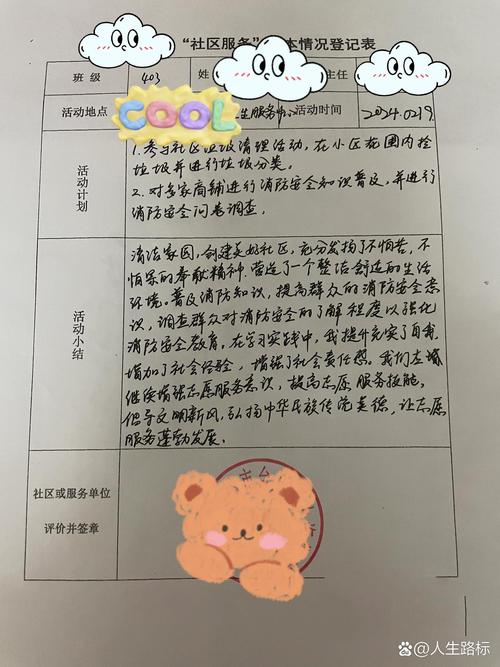 “社区服务” 本情况登记表
班 级 403 姓 主任
活动地点 COOL 生服务中心 活动时间 2024.0219
活动计划
1.参与社区垃圾清理活动，在小区范围内捡
垃圾并进行垃圾分类。
2.对多家商铺进行消防安全知识普及，并进行
消防安全问卷调查。
活动小结
清洁家园，创建美好社区，充分发扬了不怕苦，不
怕累的奉献精神.营造了一个整洁舒适的生活
环境。普及消防知识，提高群众的消防安全意
识，调查群众对消防安全的了解程度以强化
消防安全教育。在学习实践中，我提升充实了自我，
增加了社会经验，增强了社会责任感。我们应当
继续增强志愿服务意识，提高志愿服务技能。
倡导文明新风，弘扬中华民族传统美德，让志愿
服务蓬勃发展。
社区或服务单位
评价并签章
百家号@人生路标